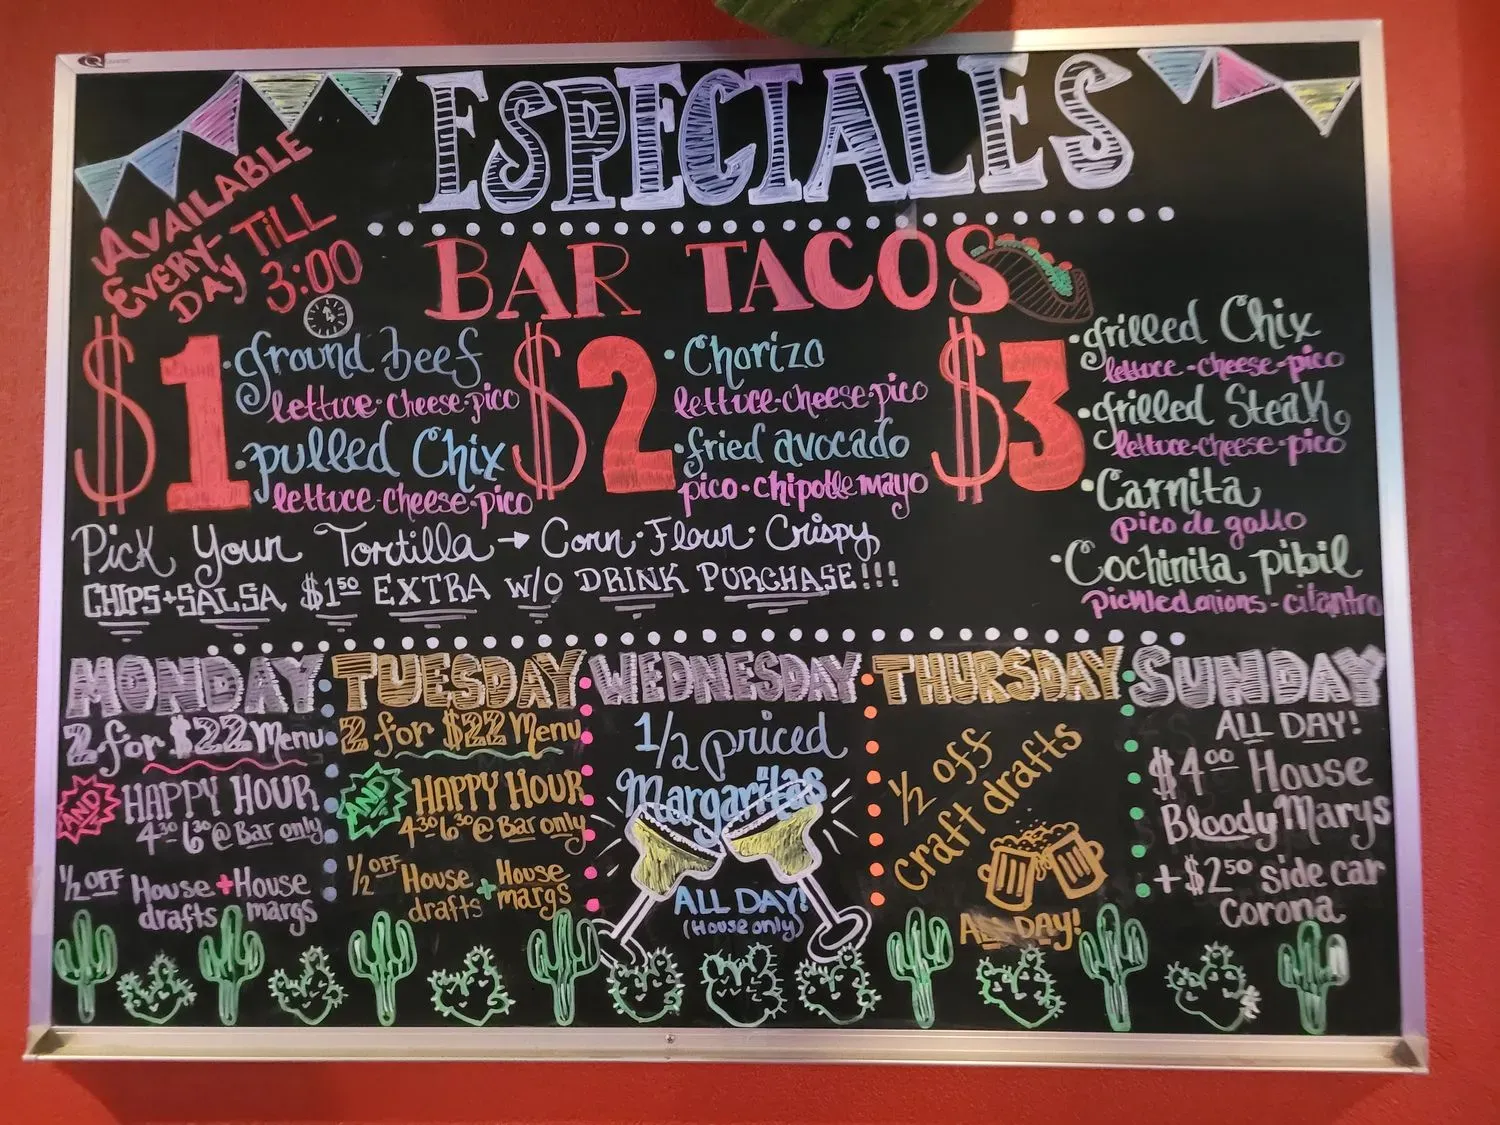 ESPECIALES
AVAILABLE
EVERY-
DAY TiLL
3:00
BAR TACOS
$1
•ground beef
lettuce•cheese•pico
•pulled Chix
lettuce-cheese-pico
$2
•Chorizo
lettuce-cheese•pico
•fried avocado
pico•chipotle mayo
$3
•grilled Chix
lettuce-cheese-pico
•grilled Steak
lettuce-cheese-pico
•Carnita
pico de gallo
•Cochinita pibil
pickled onions - cilantro
Pick Your Tortilla → Corn • Flour • Crispy
CHIPS+SALSA $1⁵⁰ EXTRA W/O DRINK PURCHASE!!!
MONDAY
2 for $22 Menu
AND HAPPY HOUR
4³⁰ 6³⁰ @ Bar only
1/2 OFF House + House
drafts margs
TUESDAY
2 for $22 Menu
AND HAPPY HOUR
4³⁰ 6³⁰ @ Bar only
1/2 OFF House + House
drafts margs
WEDNESDAY
1/2 priced
Margaritas
ALL DAY!
(House only)
THURSDAY
1/2 off
Craft drafts
ALL DAY!
SUNDAY
ALL DAY!
$4⁰⁰ House
Bloody Marys
+ $2⁵⁰ side car
Corona